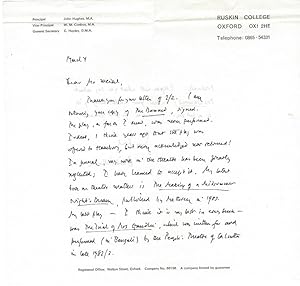 Principal John Hughes, M.A.
Vice-Principal
General Secretary
RUSKIN COLLEGE
OXFORD OX1 2HE
Telephone: 0865 - 54331
Dear Mr
Thank you for your letter of 2/2. I am
returning your copy of The Damned, signed.
The play, as far as I know, was never performed.
Indeed, I think years ago that the play was
offered to somebody, but being acknowledged nor returned!
In general, my work in the theatre has been
neglected; I have learned to accept it. My latest
book on theatre matters is The Making of a Midsummer
Night's Dream, published by Methuen in 1982.
My last play - I think it is my last in every sense -
was The Trial of Mrs Gandhi, which was written for and
performed (in Bengali) by the People's Theatre of Calcutta
in late 1982/3.
Registered Office: Walton Street, Oxford. Company No. A company limited by guarantee